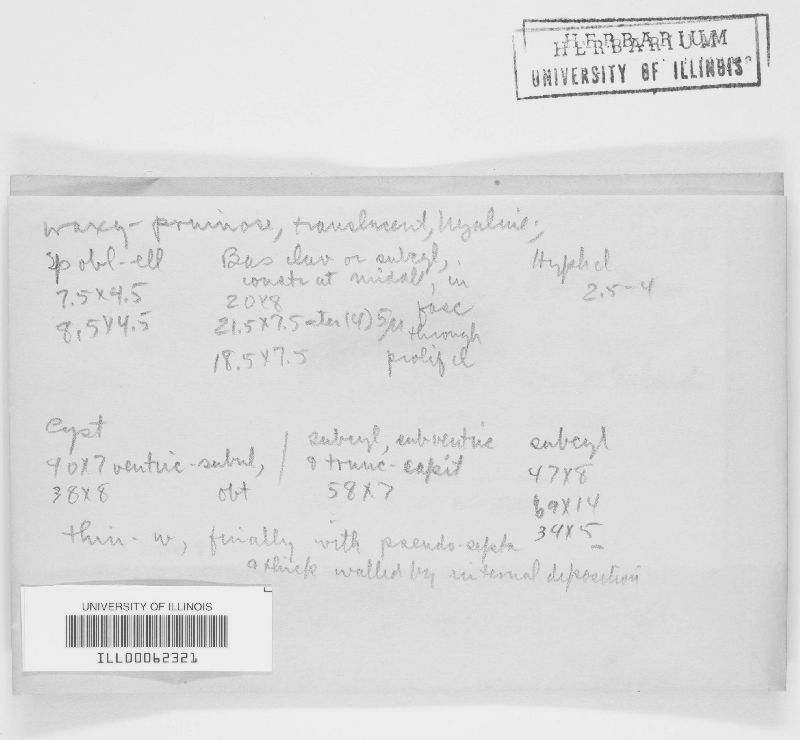 HERBARIUM
UNIVERSITY OF ILLINOIS
waxy-pruinose, translucent, hyaline;
Sp obl-ell
7.5x4.5
8.5x4.5
Bas clav or subcyl,
constr at middle, in
20x8 fasc
21.5x7.5 ster (4) 5µ through
18.5x7.5 prolif cl
Hyph cl
2.5-4
Cyst
40x7 ventric-subul,
38x8 obt
subcyl, subventric
& trunc-capit
58x7
subcyl
47x8
69x14
34x5
thin-w, finally with pseudo-septa
& thick walled by internal deposition
UNIVERSITY OF ILLINOIS
ILL00062321